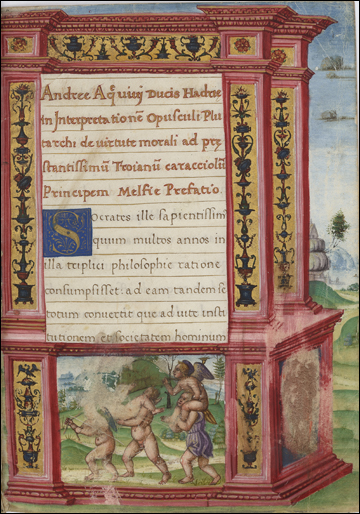 Andree Aq̃uiuj Ducis Hadrie
in Interpretationẽ Opusculi Plu
tarchi de uirtute morali ad pre
stantissimũ Troianũ caracciolũ
Principem Melfie Prefatio.
SOcrates ille sapientissim
quum multos annos in
illa triplici philosophie ratione
consumpsisset: ad eam tandem se
totum conuertit que ad uite insti
tutionem et societatem hominum